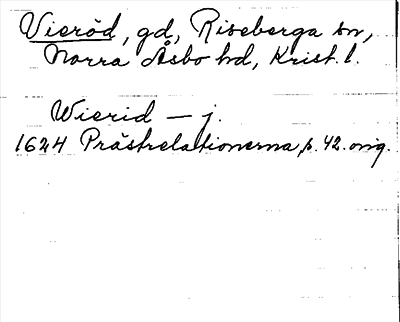 Vieröd, gd, Riseberga sn,
Norra Åsbo hd, Krist. l.
Wierid – j.
1624 Prästrelationerna, p. 42. orig.